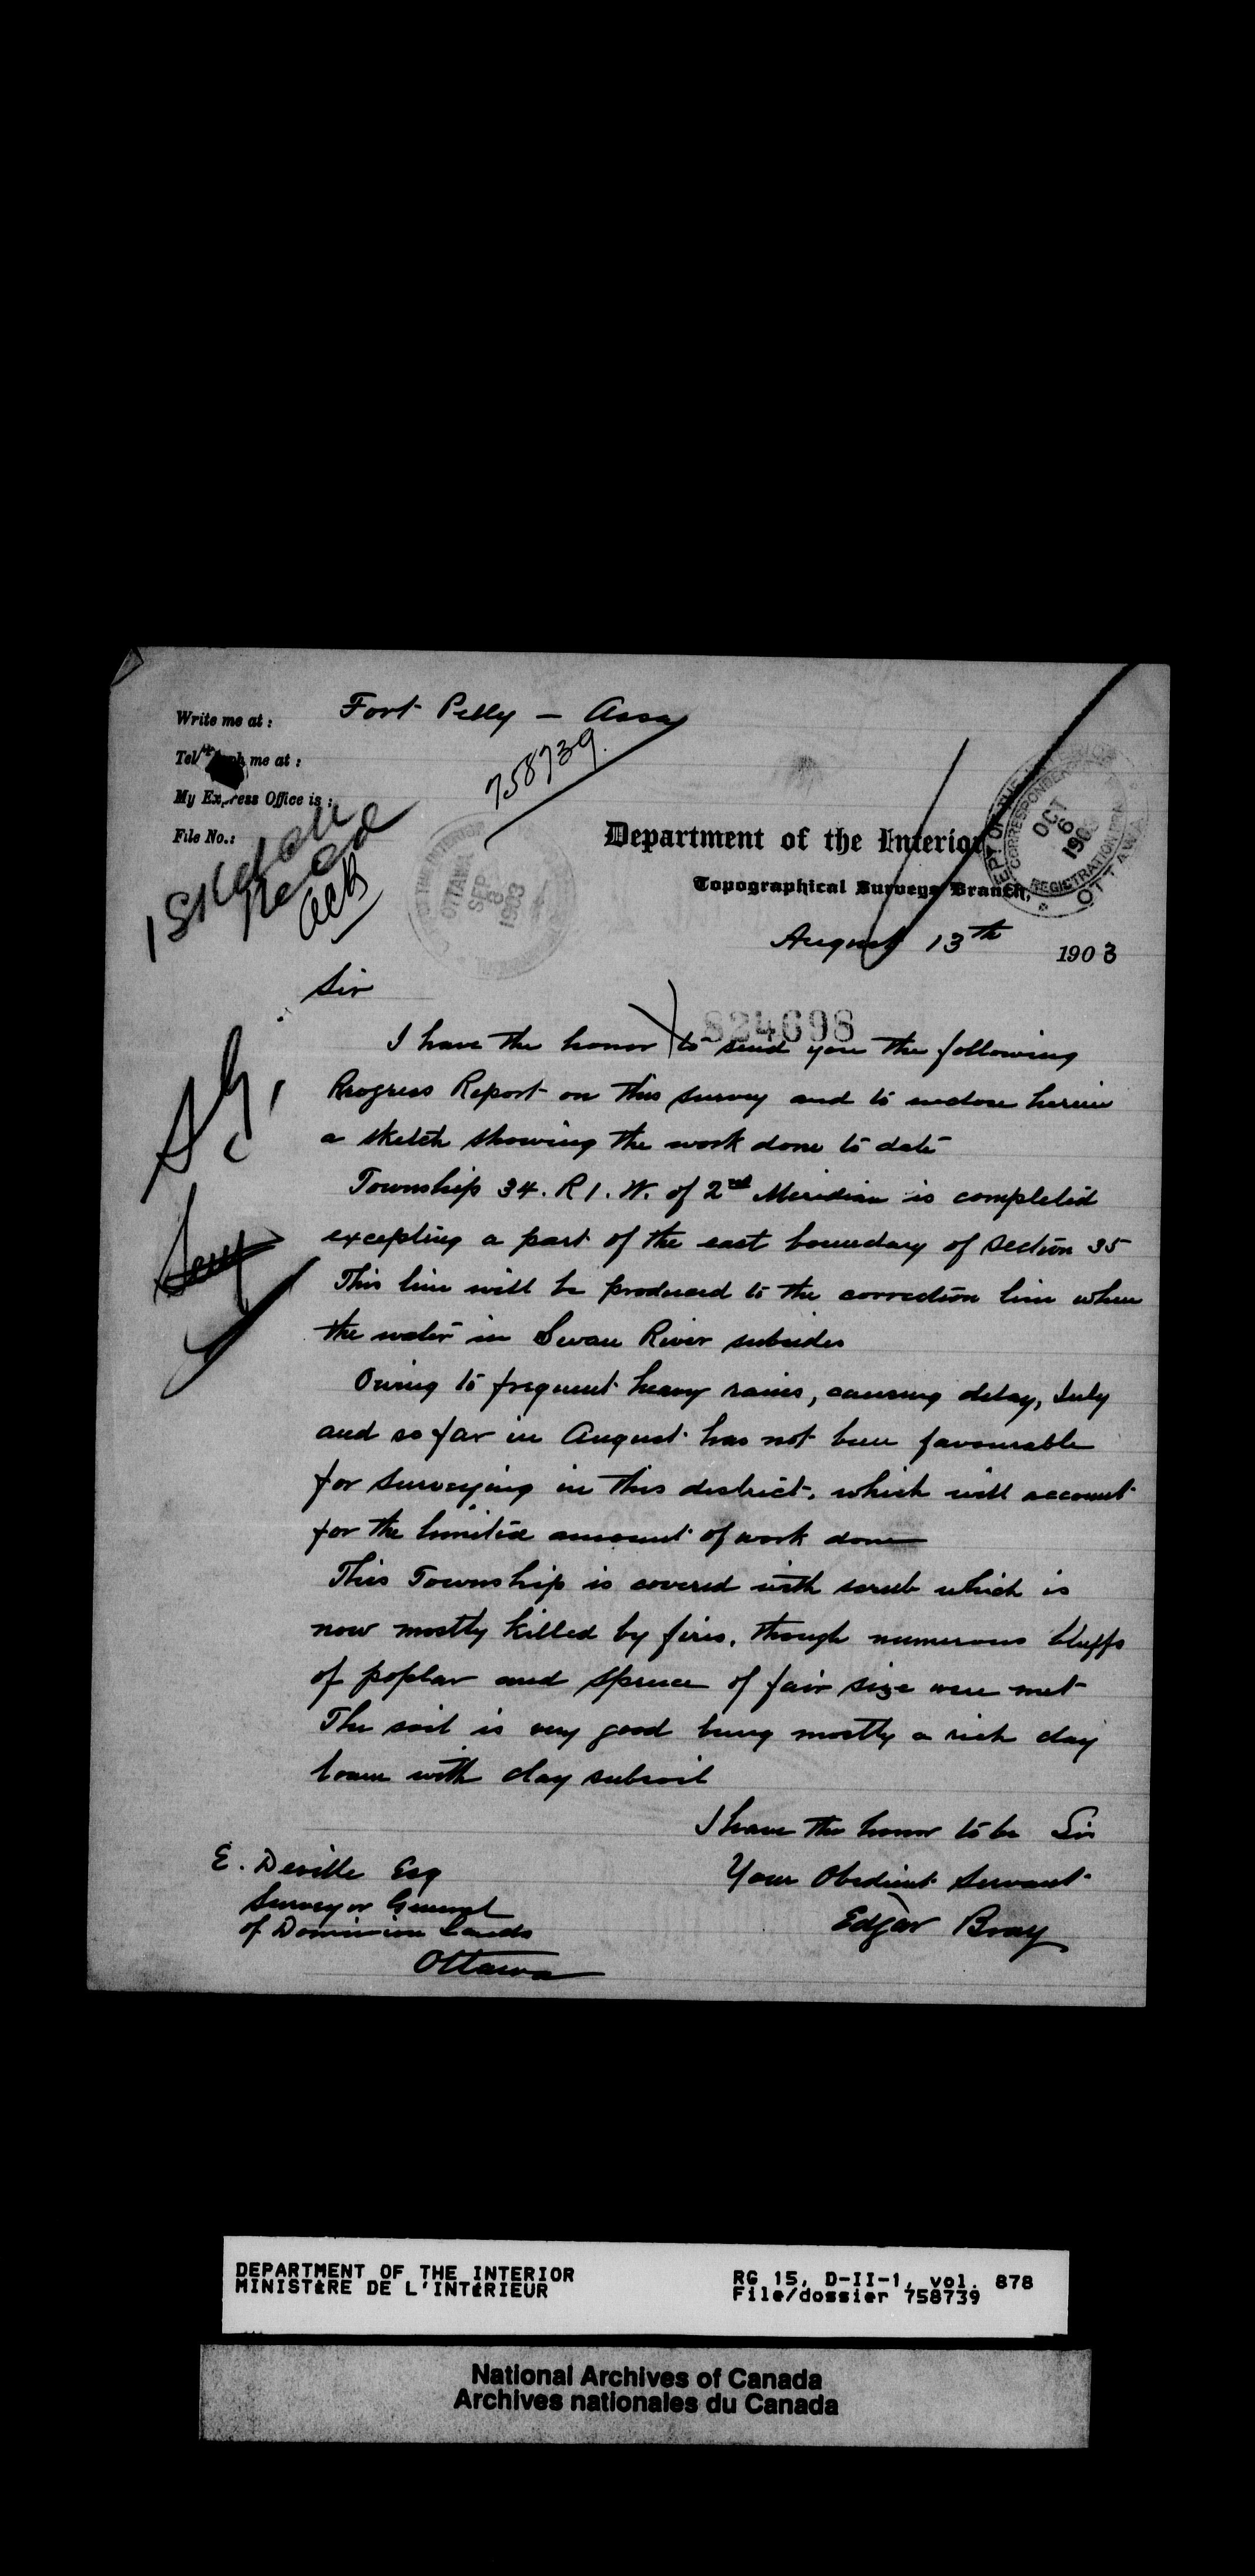 Write me at: Fort Pelly — Assa
Telegraph me at:
758739
My Express Office is:
File No.:
1 Sketch
Rec'd
ACB
OTTAWA
SEP 8
1903
DEPT OF THE INTERIOR
CORRESPONDENCE
OCT
6
1903
REGISTRATION
OTTAWA
Department of the Interior
Topographical Surveys Branch,
August 13th 1903
Sir
824698
I have the honor to send you the following
Progress Report on this survey and to enclose herein
a sketch showing the work done to date
Township 34. R 1. W. of 2nd Meridian is completed
excepting a part of the east boundary of section 35
This line will be produced to the correction line when
the water in Swan River subsides
Owing to frequent heavy rains, causing delay, July
and so far in August has not been favourable
for surveying in this district, which will account
for the limited amount of work done
This Township is covered with scrub which is
now mostly killed by fires, though numerous bluffs
of poplar and spruce of fair size were met
The soil is very good being mostly a rich clay
loam with clay subsoil
I have the honor to be Sir
Your Obedient Servant
Edgar Bray
E. Deville Esq
Surveyor General
of Dominion Lands
Ottawa
DEPARTMENT OF THE INTERIOR
MINISTÈRE DE L'INTÉRIEUR
RG 15, D-II-1, vol. 878
File/dossier 758739
National Archives of Canada
Archives nationales du Canada